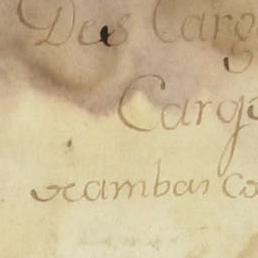 Des Carg
Cargo
rambas Co